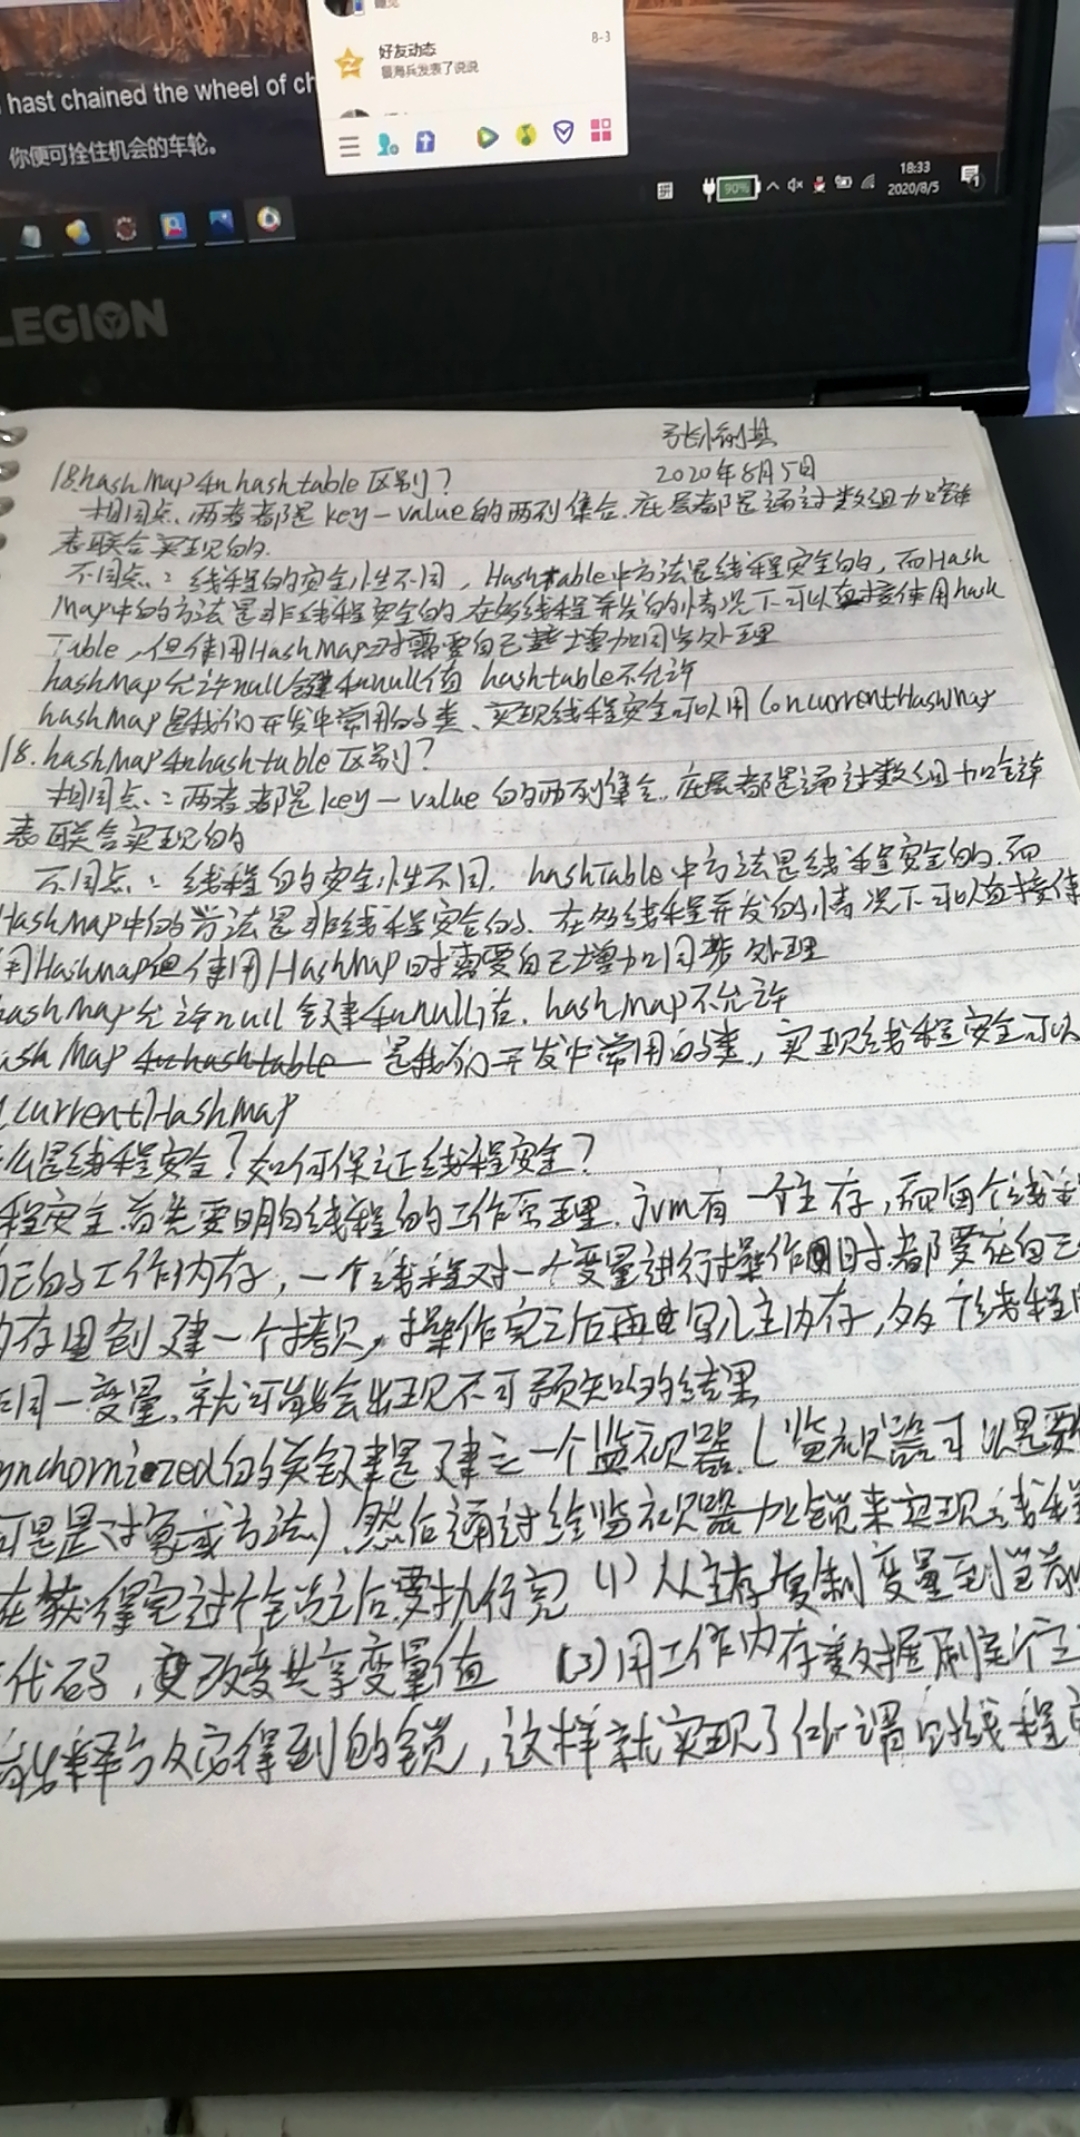 hast chained the wheel of ch
你便可拴住机会的车轮。
好友动态
8-3
发表了说说
90%
18:33
2020/8/5
LEGION
2020年8月5日
18.hashMap和hashtable区别?
相同点:两者都是key-value的两列集合.底层都是通过数组加链
表联合实现的.
不同点:线程的安全性不同,Hashtable中方法是线程安全的,而Hash
Map中的方法是非线程安全的.在多线程并发的情况下可以直接使用hash
Table,但使用HashMap时需要自己增加同步处理
hashMap允许null键和null值 hashtable不允许
hashMap是我们开发中常用的类、实现线程安全可以用ConcurrentHashMap
18.hashMap和hashtable区别?
相同点:两者都是key-value的两列集合.底层都是通过数组加链
表联合实现的
不同点:线程的安全性不同.hashTable中方法是线程安全的.而
HashMap中的方法是非线程安全的.在多线程并发的情况下可以直接使
用HashMap但使用HashMap时需要自己增加同步处理
hashMap允许null键和null值.hashMap不允许
ash Map 和hashtable 是我们开发中常用的类,实现线程安全可以
currentHashMap
么是线程安全?如何保证线程安全?
程安全.首先要明白线程的工作原理.jvm有一个主存,而每个线程
己的工作内存,一个线程对一个变量进行操作时.都要在自己
内存里创建一个拷贝,操作完之后再写入主内存,多个线程
同一变量.就可能会出现不可预知的结果
nchornized的关键是建立一个监视器.(监视器可以是要
可是是对象或方法).然后通过给监视器加锁来实现线程
在获得完这个锁之后.要执行完 (1)从主存复制变量到当前
代码,改变共享变量值 (3)用工作内存数据刷完主
释放得到的锁,这样就实现了所谓的线程安